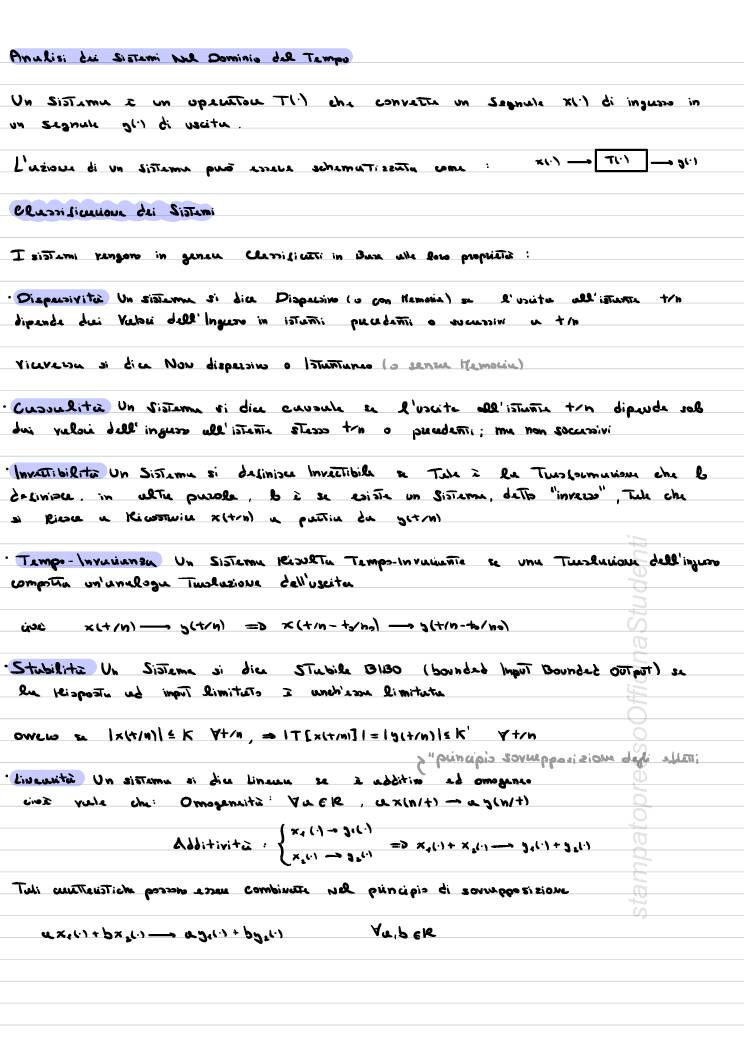 Analisi dei Sistemi Nel Dominio del Tempo
Un Sistema è un operatore T(·) che converte un segnale x(·) di ingresso in
un segnale y(·) di uscita.
L'azione di un sistema può essere schematizzata come : x(·) → T(·) → y(·)
Classificazione dei Sistemi
I sistemi vengono in genere Classificati in Base alle loro proprietà :
· Dispersività Un sistema si dice Dispersivo (o con Memoria) se l'uscita all'istante t/n
dipende dai Valori dell'Ingresso in istanti precedenti o successivi a t/n
viceversa si dice Non dispersivo o Istantaneo (o senza Memoria)
· Causalità Un Sistema si dice causale se l'uscita all'istante t/n dipende solo
dai valori dell'ingresso all'istante stesso t/n o precedenti; ma non successivi
· Invertibilità Un Sistema si definisce Invertibile se Tale è la Trasformazione che lo
definisce. in altre parole, lo è se esiste un Sistema, detto "inverso", Tale che
si Riesce a Ricostruire x(t/n) a partire da y(t/n)
· Tempo-Invarianza Un Sistema Risulta Tempo-Invariante se una Traslazione dell'ingresso
comporta un'analoga Traslazione dell'uscita
cioè x(t/n) → y(t/n) ⇒ x(t/n - t₀/n₀) → y(t/n-t₀/n₀)
· Stabilità Un Sistema si dice STabile BIBO (bounded Input Bounded OUTput) se
la Risposta ad input limitato è anch'essa limitata
ovvero se |x(t/n)| ≤ K ∀t/n, ⇒ |T[x(t/n)]| = |y(t/n)| ≤ K' ∀t/n
"principio sovrapposizione degli effetti
· Linearità Un sistema si dice Lineare se è additivo ed omogeneo
cioè vale che: Omogeneità: ∀a∈ℝ, a x(n/t) → a y(n/t)
Additività : { x₁(·) → y₁(·) x₂(·) → y₂(·) ⇒ x₁(·) + x₂(·) → y₁(·) + y₂(·)
Tali caratteristiche possono essere combinate nel principio di sovrapposizione
a x₁(·) + b x₂(·) → a y₁(·) + b y₂(·) ∀a,b∈ℝ
stampatopressoOfficinaStudenti